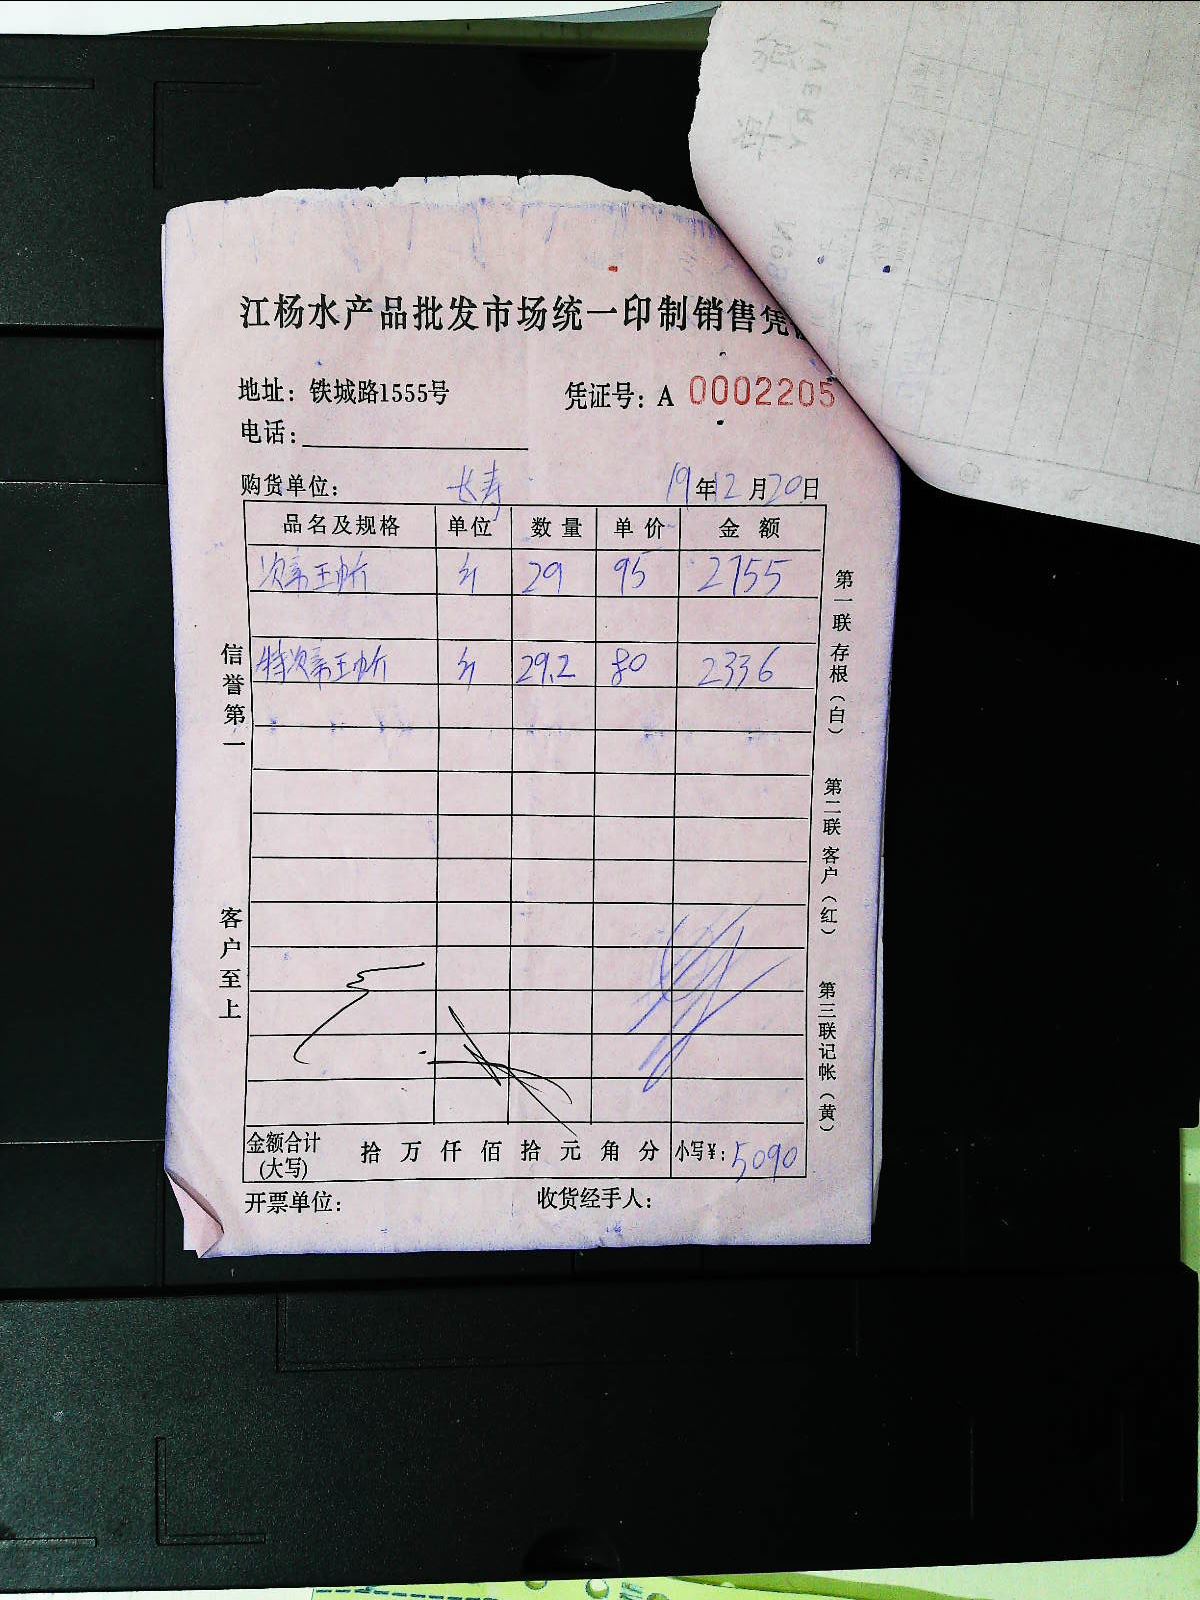 江杨水产品批发市场统一印制销售凭
地址：铁城路1555号
凭证号：A 0002205
电话：
购货单位：长寿 19年12月20日
品名及规格 单位 数量 单价 金额
斤 29 95 2755
斤 29.2 80 2336
信誉第一
客户至上
第一联存根（白）
第二联客户（红）
第三联记帐（黄）
金额合计(大写) 拾 万 仟 佰 拾 元 角 分 小写¥：5090
开票单位：
收货经手人：